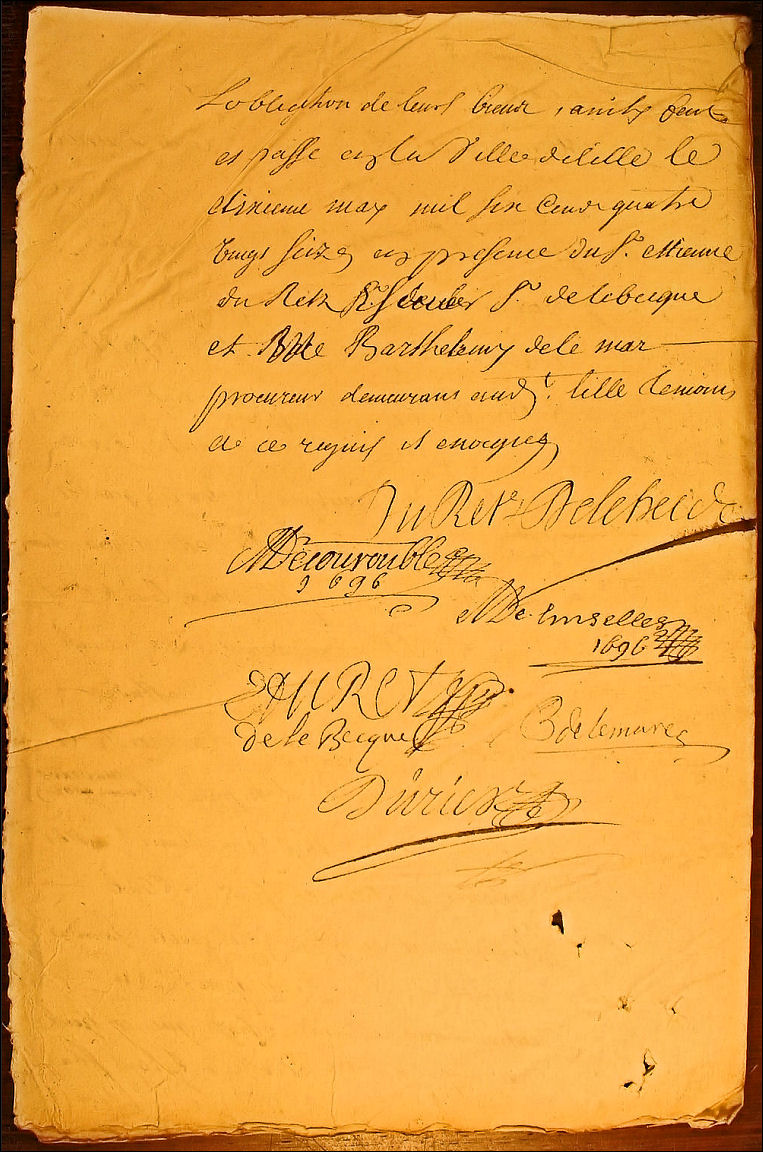 Lobligation de leurs biens, ainsy
et passé en la Ville de lille le
may mil six Cens quatre
vingt seize en presence du Sr. estienne
du Retz Sr. de lebecque
et Barthelemy de le mar
procureur demeurans aud t. lille temoins
de ce requis et
Du Retz
MDecouroubles
1696
MDe
1696
EDURET
de le Becque
B de lemare
Duriez